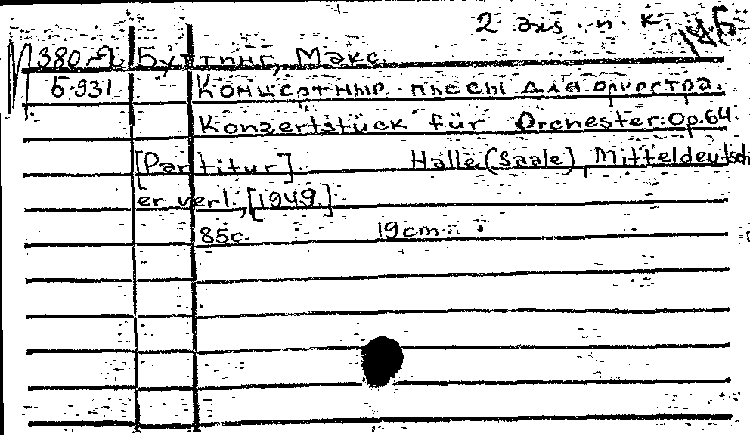 2 экз. п. к.
380-Л Буттинг, Макс.
Б-931 Концертные пьесы для оркестра.
Konzertstück für Orchester. Op. 64
[Partitur]. Halle (Saale), Mitteldeutsch
er verl., [1949].
85c. 19cm.